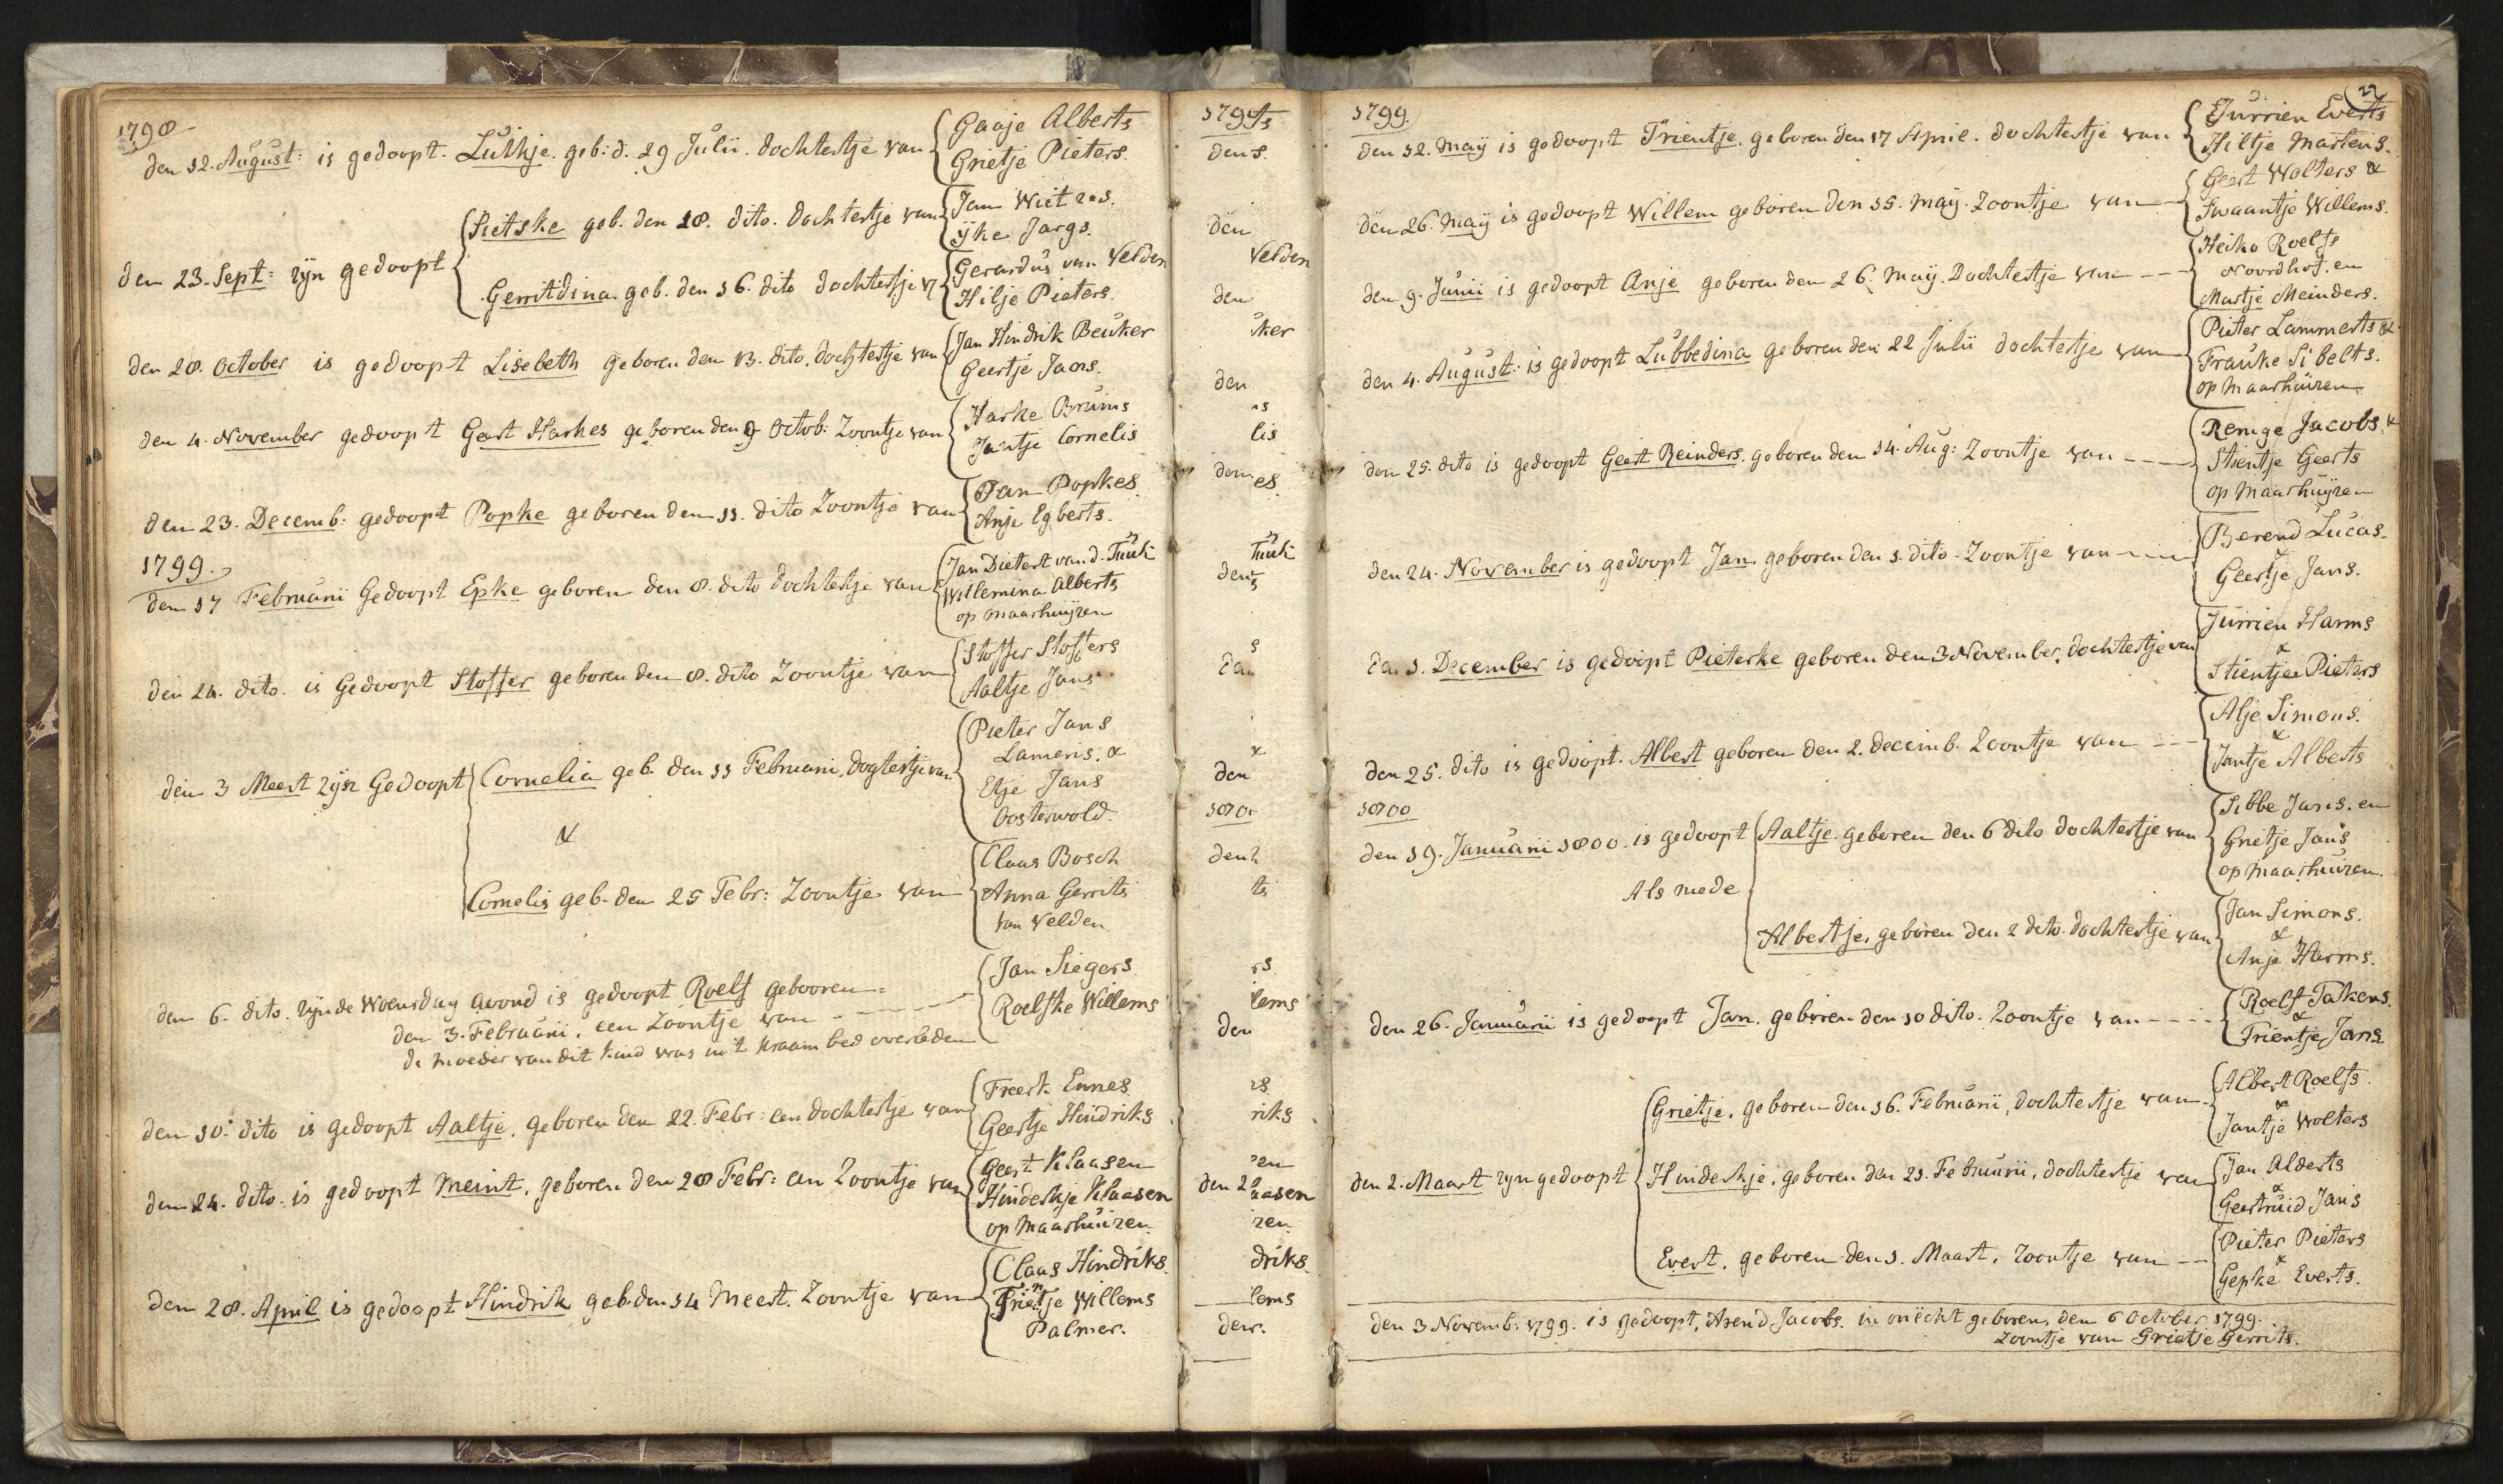 1798
den 12. August: is gedoopt. Luthje. geb: d. 29 Julii. dochtertje van
Gaaje Alberts
Grietje Pieters.
den 23. Sept: zijn gedoopt
Sietske geb. den 18. dito. dochtertje van
Jan
ijke Jargs.
Gerritdina. geb. den 16. dito dochtertje v
Gerardus van Velden
Hilje Pieters.
den 28. October is gedoopt Lisebeth geboren den 13. dito. dochtertje van
Jan Hindrik Beuker
Geertje Jans.
den 4. November gedoopt Geert Harkes geboren den 9 Octob: Zoontje van
Harke Bruins
Jantje Cornelis
den 23. Decemb: gedoopt Popke geboren den 11. dito Zoontje van
Jan Popkes
Anje Egberts.
1799.
den 17 Februarii Gedoopt Epke geboren den 8. dito dochtertje van
Jan Dietert van d. Tuuk
Willemina Alberts
op maarhuijzen
den 24. dito. is Gedoopt Stoffer geboren den 8. dito Zoontje van
Stoffer Stoffers
Aaltje Jans
den 3 Meert zijn Gedoopt
Cornelia geb. den 11 Februarii, dogtertje van
Pieter Jans
Lamens. &
Etje Jans
Oosterwold.
&
Cornelis geb. den 25 Febr: Zoontje van
Claas Bosch
Anna Gerrits
van Velden
den 6. dito. zijnde Woensdag avond is gedoopt Roelf gebooren
den 3. Februarii. een Zoontje van
de moeder van dit kind was in 't kraambed overleden
Jan Siegers
Roelfke Willems
den 10. dito is gedoopt Aaltje, geboren den 22. Febr: een dochtertje van
Freerk Ennes
Geertje Hindriks
den 24. dito. is gedoopt Meint, geboren den 28 Febr: een Zoontje van
Geert Klaasen
Hinderkje Klaasen
op Maarhuizen
den 28. April is gedoopt Hindrik geb. den 14 Meert. Zoontje van
Claas Hindriks.
Trientje Willems
Palmer.
1799.
22
den 12. Maij is gedoopt Trientje, geboren den 17 April. dochtertje van
Jurrien Everts
Hiltje Martens.
den 26. Maij is gedoopt Willem geboren den 15. maij. Zoontje van
Geert Wolters &
Swaantje Willems.
den 9. Junii is gedoopt Anje geboren den 26. Maij. Dochtertje van
Heiko Roelfs
Noordhof. en
Martje Meinders.
den 4. August: is gedoopt Lubbedina geboren den 22 Julii dochtertje van
Pieter Lammerts &
Frauke Sibelts.
op Maarhuizen
den 25. dito is gedoopt Geert Reinders. geboren den 14. Aug: Zoontje van
Remge Jacobs. &
Stientje Geerts
op Maarhuijzen
den 24. November is gedoopt Jan. geboren den 1. dito. Zoontje van
Berend Lucas.
&
Geertje Jans.
den 1. December is gedoopt Pieterke geboren den 3 November. dochtertje van
Jurrien Harms
&
Stientje Pieters
den 25. dito is gedoopt. Albert geboren den 2. decemb. Zoontje van
Alje Simons.
&
Jantje Alberts
1800
den 19. Januarii 1800. is gedoopt
Aaltje. geboren den 6 dito dochtertje van
Sibbe Jans. en
Grietje Jans
op Maarhuizen.
Als mede
Albertje, geboren den 2 dito. dochtertje van
Jan Simons.
&
Anje Harms.
den 26. Januarii is gedoopt Jan. geboren den 10 dito. Zoontje van
Roelf Takens.
&
Trientje Jans.
den 2. Maart zijn gedoopt
Grietje, geboren den 16. Februarii, dochtertje van
Albert Roelfs.
&
Jantje Wolters
Hinderkje, geboren den 21. Februarii, dochtertje van
Jan Alderts
&
Geertruid Jans
Evert, geboren den 1. Maart, Zoontje van
Pieter Pieters
&
Gepke Everts.
den 3 Novemb: 1799. is gedoopt, Arend Jacobs. in onecht geboren, den 6 October 1799.
Zoontje van Grietje Gerrits.